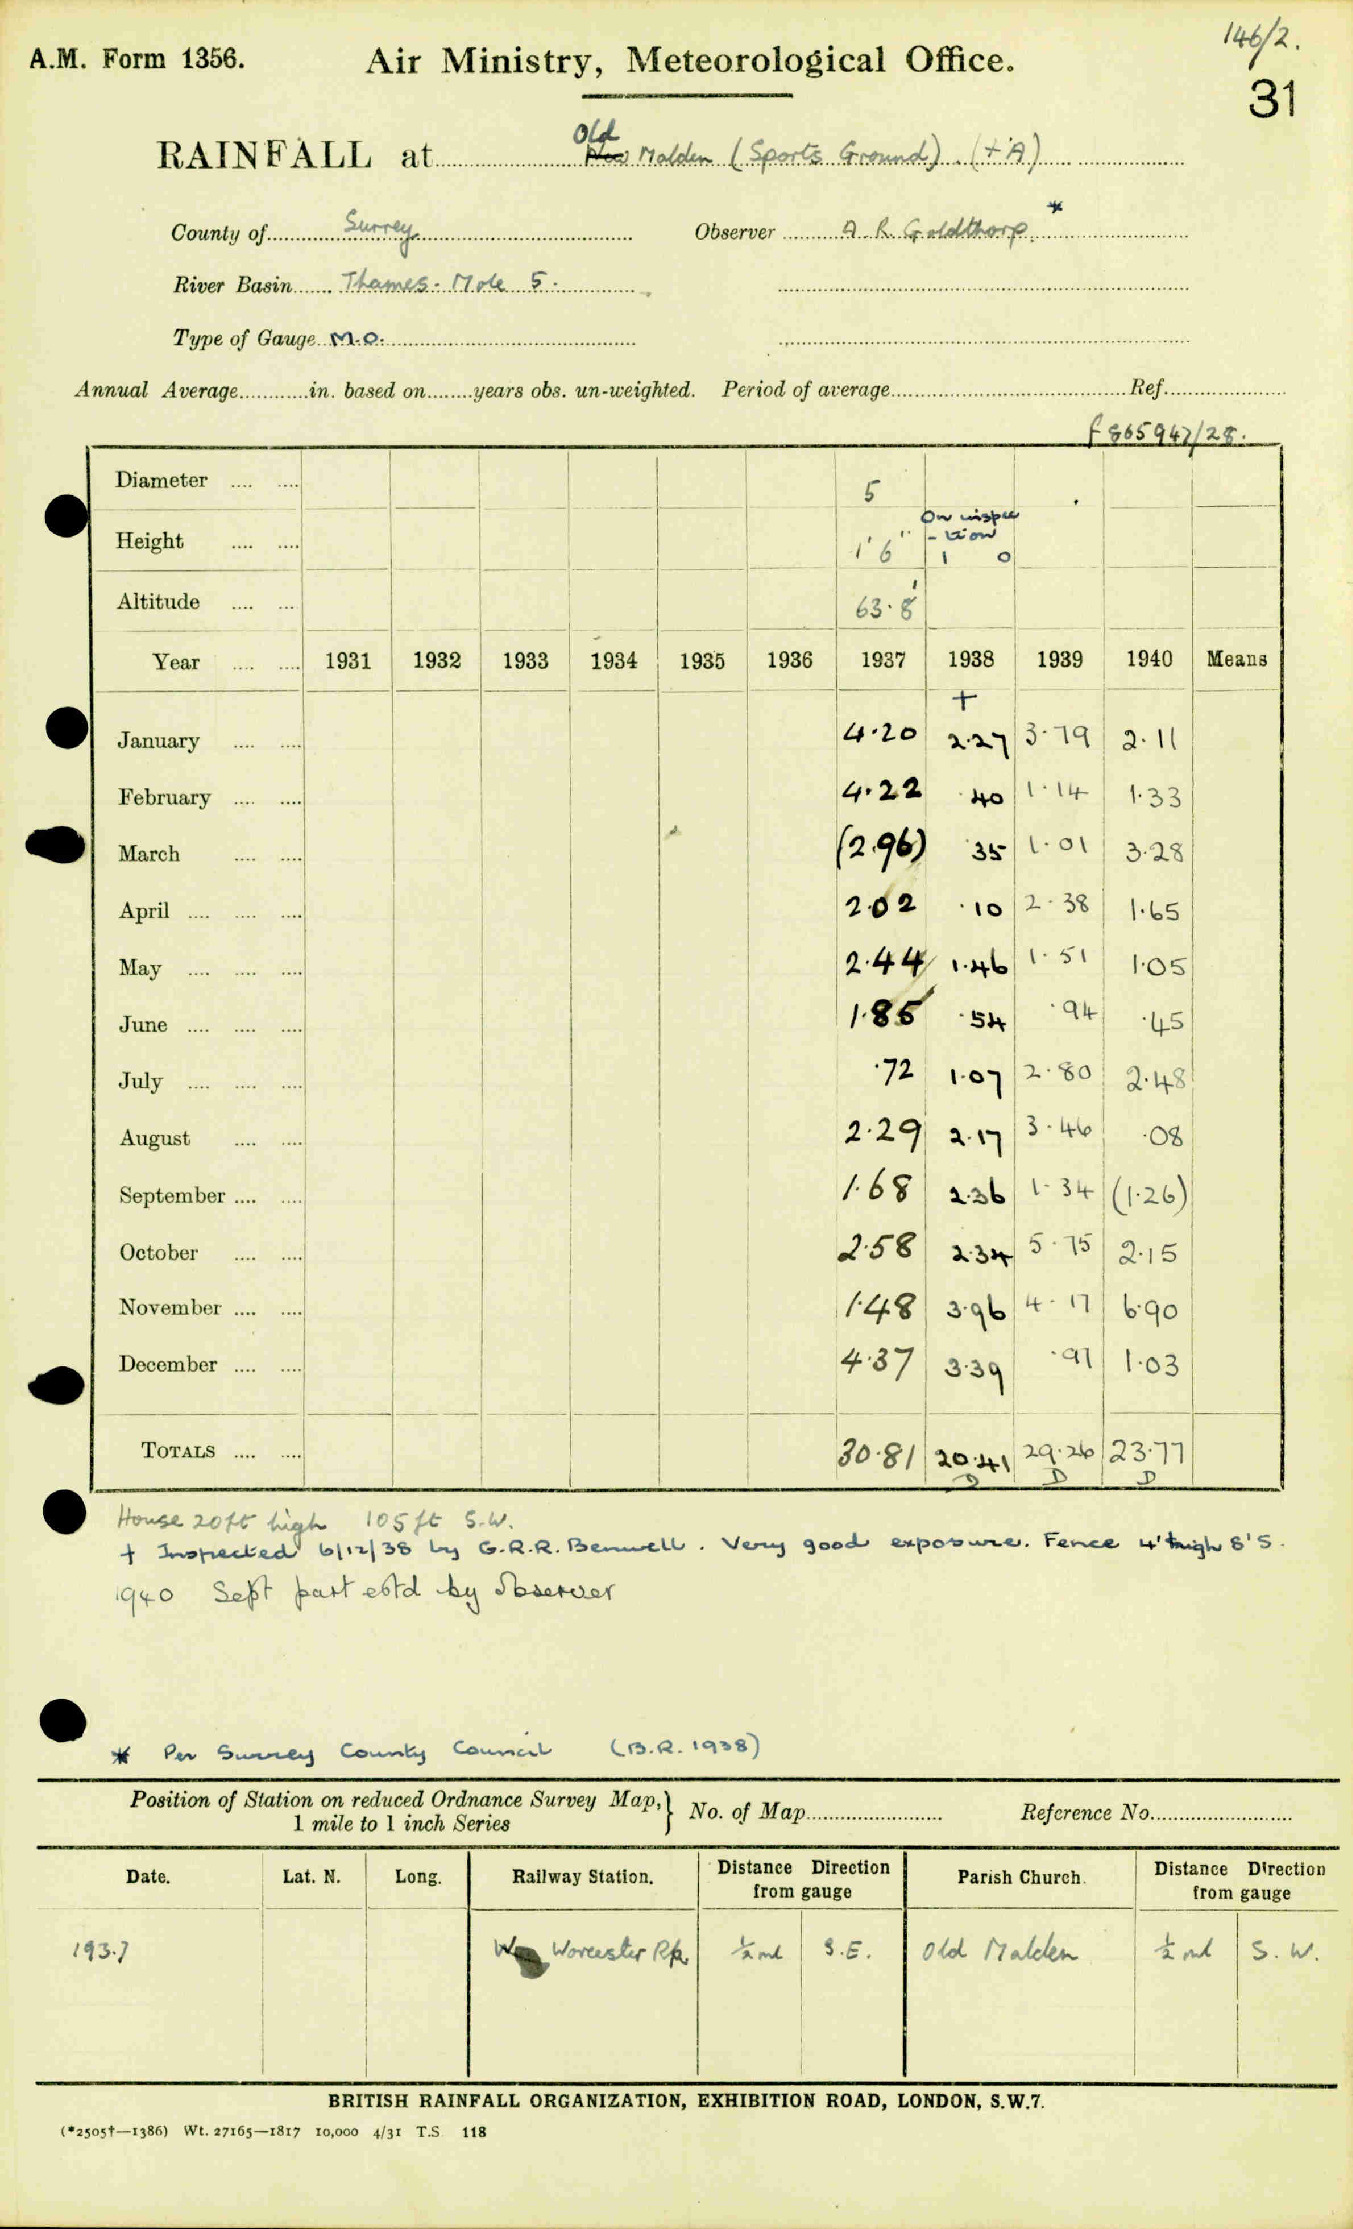 146/2.
A.M. Form 1356. Air Ministry, Meteorological Office.
31
Old
RAINFALL at New Malden (Sports Ground). (+A)
County of Surrey Observer A. R. Goldthorp. *
River Basin Thames - Mole 5.
Type of Gauge M.O.
Annual Average in. based on years obs. un-weighted. Period of average Ref.
f 865947/28.
Diameter 5
Height 1' 6" On inspec-tion 1 0
Altitude 63.8'
Year 1931 1932 1933 1934 1935 1936 1937 1938 1939 1940 Means
+
January 4.20 2.27 3.79 2.11
February 4.22 .40 1.14 1.33
March (2.96) .35 1.01 3.28
April 2.02 .10 2.38 1.65
May 2.44 1.46 1.51 1.05
June 1.85 .54 .94 .45
July .72 1.07 2.80 2.48
August 2.29 2.17 3.46 .08
September 1.68 2.36 1.34 (1.26)
October 2.58 2.34 5.75 2.15
November 1.48 3.96 4.17 6.90
December 4.37 3.39 .97 1.03
TOTALS 30.81 20.41 29.26 23.77
D D D
House 20ft high 105 ft S.W.
+ Inspected 6/12/38 by G.R.R. Benwell. Very good exposure. Fence 4' high 8' S.
1940 Sept part estd by observer
* Per Surrey County Council (B.R. 1938)
Position of Station on reduced Ordnance Survey Map, 1 mile to 1 inch Series } No. of Map Reference No.
Date. Lat. N. Long. Railway Station. Distance Direction from gauge Parish Church. Distance Direction from gauge
1937 Worcester Pk. ½ ml S.E. Old Malden ½ ml S.W.
BRITISH RAINFALL ORGANIZATION, EXHIBITION ROAD, LONDON, S.W.7.
(*2505†—1386) Wt. 27165—1817 10,000 4/31 T.S. 118